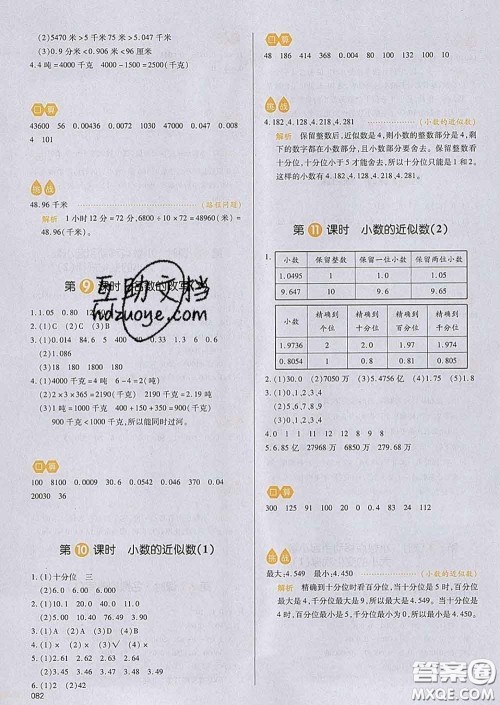 (2)5470 米>5 千米 75 米>5.047 千米
(3)0.9 分米<0.906 米<96 分米
4.4 吨=4000 千克 4000-1500=2500(千克)
口算
43600 56 0.00436 0.0072 1030 0.047 0.008
4 101
挑战
48.96 千米
解析 1 小时 12 分=72 分,6800÷10×72=48960(米)=
48.96(千米)。
第 9 课时
1.1.05 0.80
2.(1)(2)(3)A
3.(1)0.014 84.6 5 400
(2)1.086
(3)0.018 0.18 1.8
4.(1)4000 千克=4 吨 6-4=2(吨)
(2)2×3×365=2190(千克) 2190 千克=2.19 吨
(3)1 吨=1000 千克 400+150+350=900(千克)
900 千克<1000 千克,所以能同时过河。
口算
100 8100 0.0094 0.0029 0.046 340 0.0704
20030 36
第 10 课时 小数的近似数(1)
1.(1)十分位 三
2.(1)10.0 20.0 40.0 1.0
(2)10.01 20.00 40.00 1.00
3.(1)D (2)D (3)A (4)B
4.(1)6.0 13.1 1.00
5.(1)2.61 2.63 2.64
(2)3.45 3.46 3.48 3.49
6.(1)2 (2)42
082
口算
48 186 414 368 0.004 80 140 132 100 10
挑战
4.182、4.128、4.218、4.281 (小数的近似数)
解析 保留整数后,近似数是 4,则小数的整数部分是 4,剩
下的数字都在小数部分,且小数部分要舍去。保留整数看
十分位,十分位小于 5 才能舍去,所以十分位只能是 1 和 2。
这样的小数有 4.182、4.128、4.218、4.281。
第 11 课时 小数的近似数(2)
1.
小数 保留整数 保留一位小数 保留两位小数
1.0495 1 1.0 1.05
9.647 10 9.6 9.65
小数 精确到个位 精确到十分位 精确到百分位 精确到千分位
1.9736 2 2.0 1.97 1.974
0.8054 1 0.8 0.81 0.805
2.(1)30.0 (2)7050 万 (3)5.4756 亿 (4)1.75
3.(1)0、1、2、3、4
(2)5、6、7、8、9
(3)0、1、2、3、4
4.0 1 8 11 12 9
5.6.85 亿 27968 万 27.68 万
口算
300 125 91 100 20 0.04 0.0002 0.013 0.1
挑战
最大:4.549 最小:4.450 (小数的近似数)
解析 精确到十分位时看百分位,当十分位是 5 时,百分位
最大是 4,千分位最大是 9,所以最大是 4.549。当十分位是
4 时,百分位最小是 5,千分位最小是 0,所以最小是 4.450。
互助文档
hdzuoye.com
答案圈
MXQE.COM